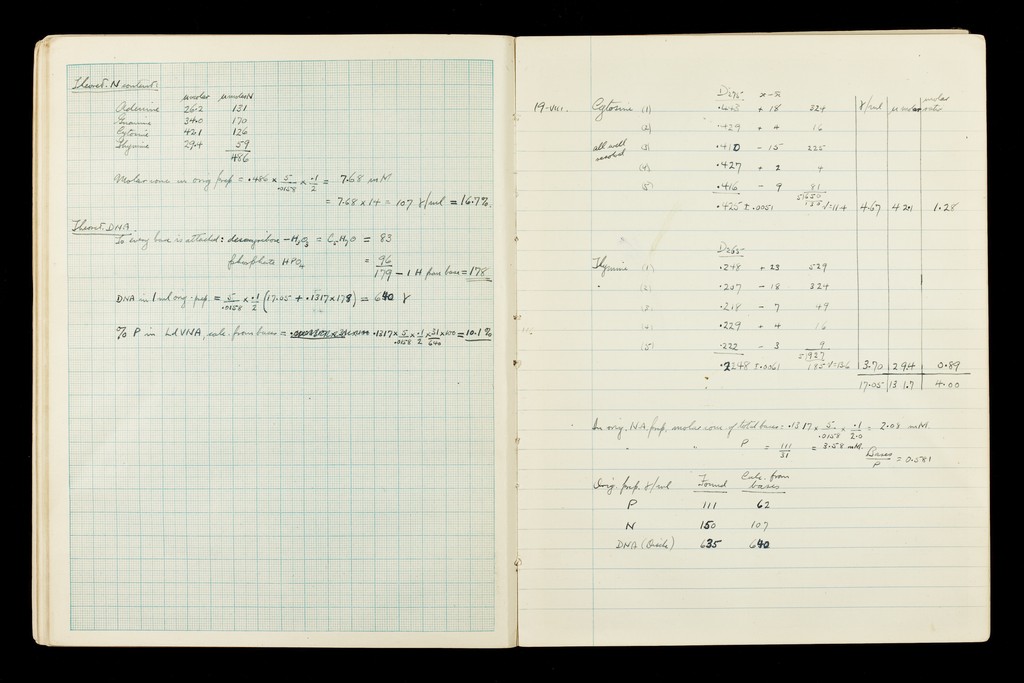 Theoret. N content:
μmolar μmolar N
Adenine 26.2 131
Guanine 34.0 170
Cytosine 42.1 126
Thymine 29.4 59
486
Molar conc in orig prep = .486 x 5/.0158 x .1/2 = 7.68 mM
= 7.68 x 14 = 107 γ/ml = 16.7%.
Theoret. DNA.
To every base is attached: desoxyribose - H2O3 = C5H7O = 83
phosphate HPO4 = 96
179 - 1 H from base = 178
DNA in 1 ml orig. prep. = 5/.0158 x .1/2 (17.05 + .1317 x 178) = 640 γ
% P in LdVNA, calc. from bases = .1317 x 5/.0158 x .1/2 x 31/640 x 100 = 10.1%
19-VIII. Cytosine (1) D275 x-x̄
.443 + 18 324 γ/ml μmolar molar ratio
(2) .429 + 4 16
all well (3) .410 - 15 225
(4) .427 + 2 4
(5) .416 - 9 81
5)650
.425 ± .0051 V=114 4.67 42.1 1.28
D265
Thymine (1) .248 + 23 529
" (2) .207 - 18 324
(3) .218 - 7 49
(4) .229 + 4 16
(5) .222 - 3 9
5)927
.2248 ± .0061 185 V=136 3.70 29.4 0.89
17.05 131.7 4.00
In orig. N.A. prep. molar conc of total bases = .1317 x 5/.0158 x .1/2.0 = 2.08 mM.
" " P = 111/31 = 3.58 mM. Bases/P = 0.581
Orig. prep. γ/ml Found Calc. from bases
P 111 62
N 150 107
DNA (Dische) 635 640